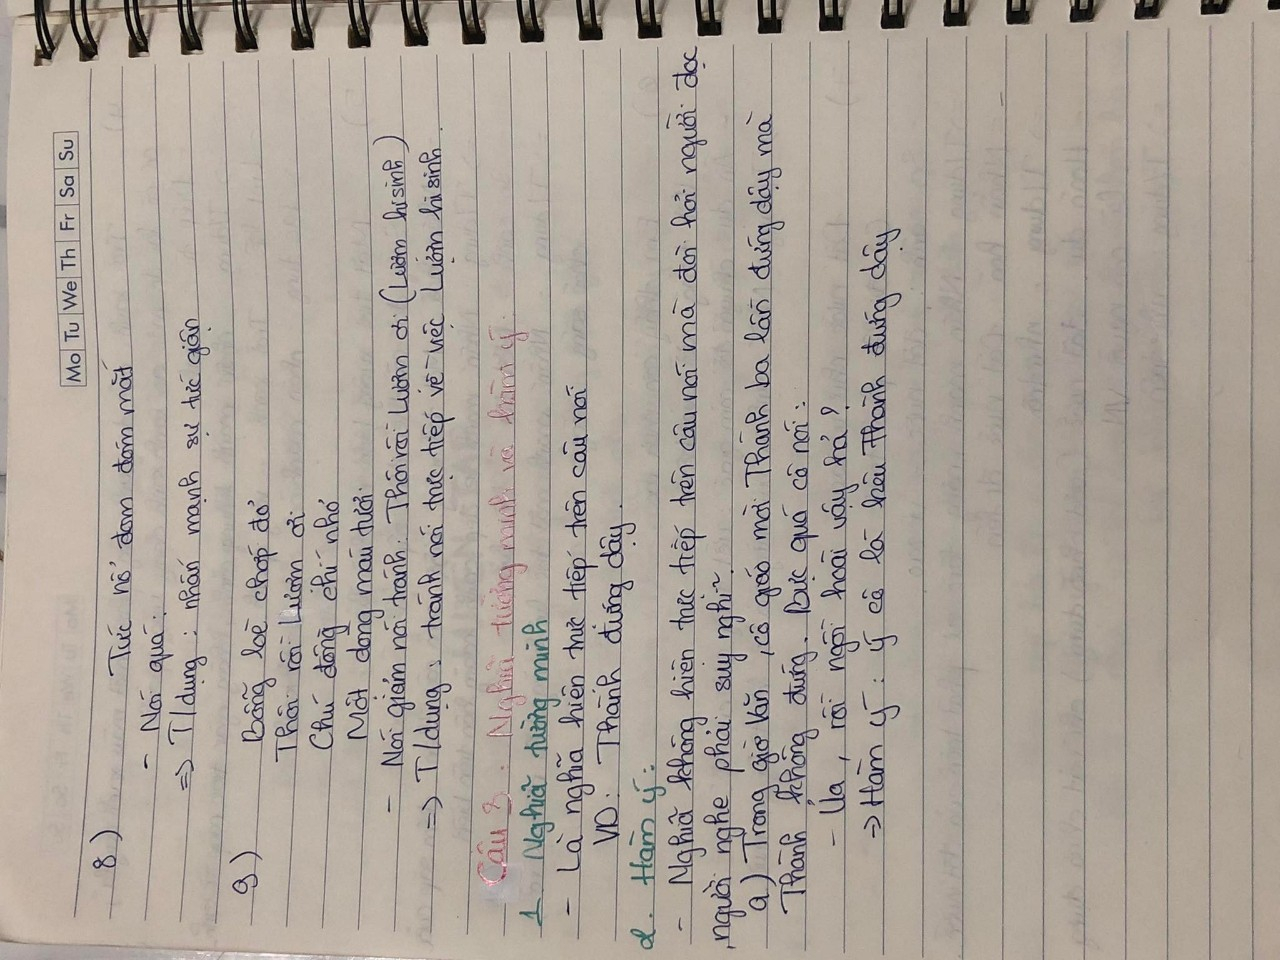 Mo Tu We Th Fr Sa Su
8) Tức nổ đom đóm mắt
- Nói quá:
=> T/dụng: nhấn mạnh sự tức giận
9) Bỗng loè chớp đỏ
Thôi rồi Lượm ơi
Chú đồng chí nhỏ
Một dòng máu tươi
- Nói giảm nói tránh: Thôi rồi Lượm ơi (Lượm hi sinh)
=> T/dụng: tránh nói trực tiếp về việc Lượm hi sinh.
Câu 3: Nghĩa tường minh và hàm ý.
1. Nghĩa tường minh
- Là nghĩa hiện trực tiếp trên câu nói
VD: Thành đứng dậy.
2. Hàm ý:
- Nghĩa không hiện trực tiếp trên câu nói mà đòi hỏi người đọc
, người nghe phải suy nghĩ.
a) Trong giờ Văn, cô giáo mời Thành ba lần đứng dậy mà
Thành không đứng. Bực quá cô nói:
- Ủa, rồi ngồi hoài vậy hả?
-> Hàm ý: ý cô là kêu Thành đứng dậy